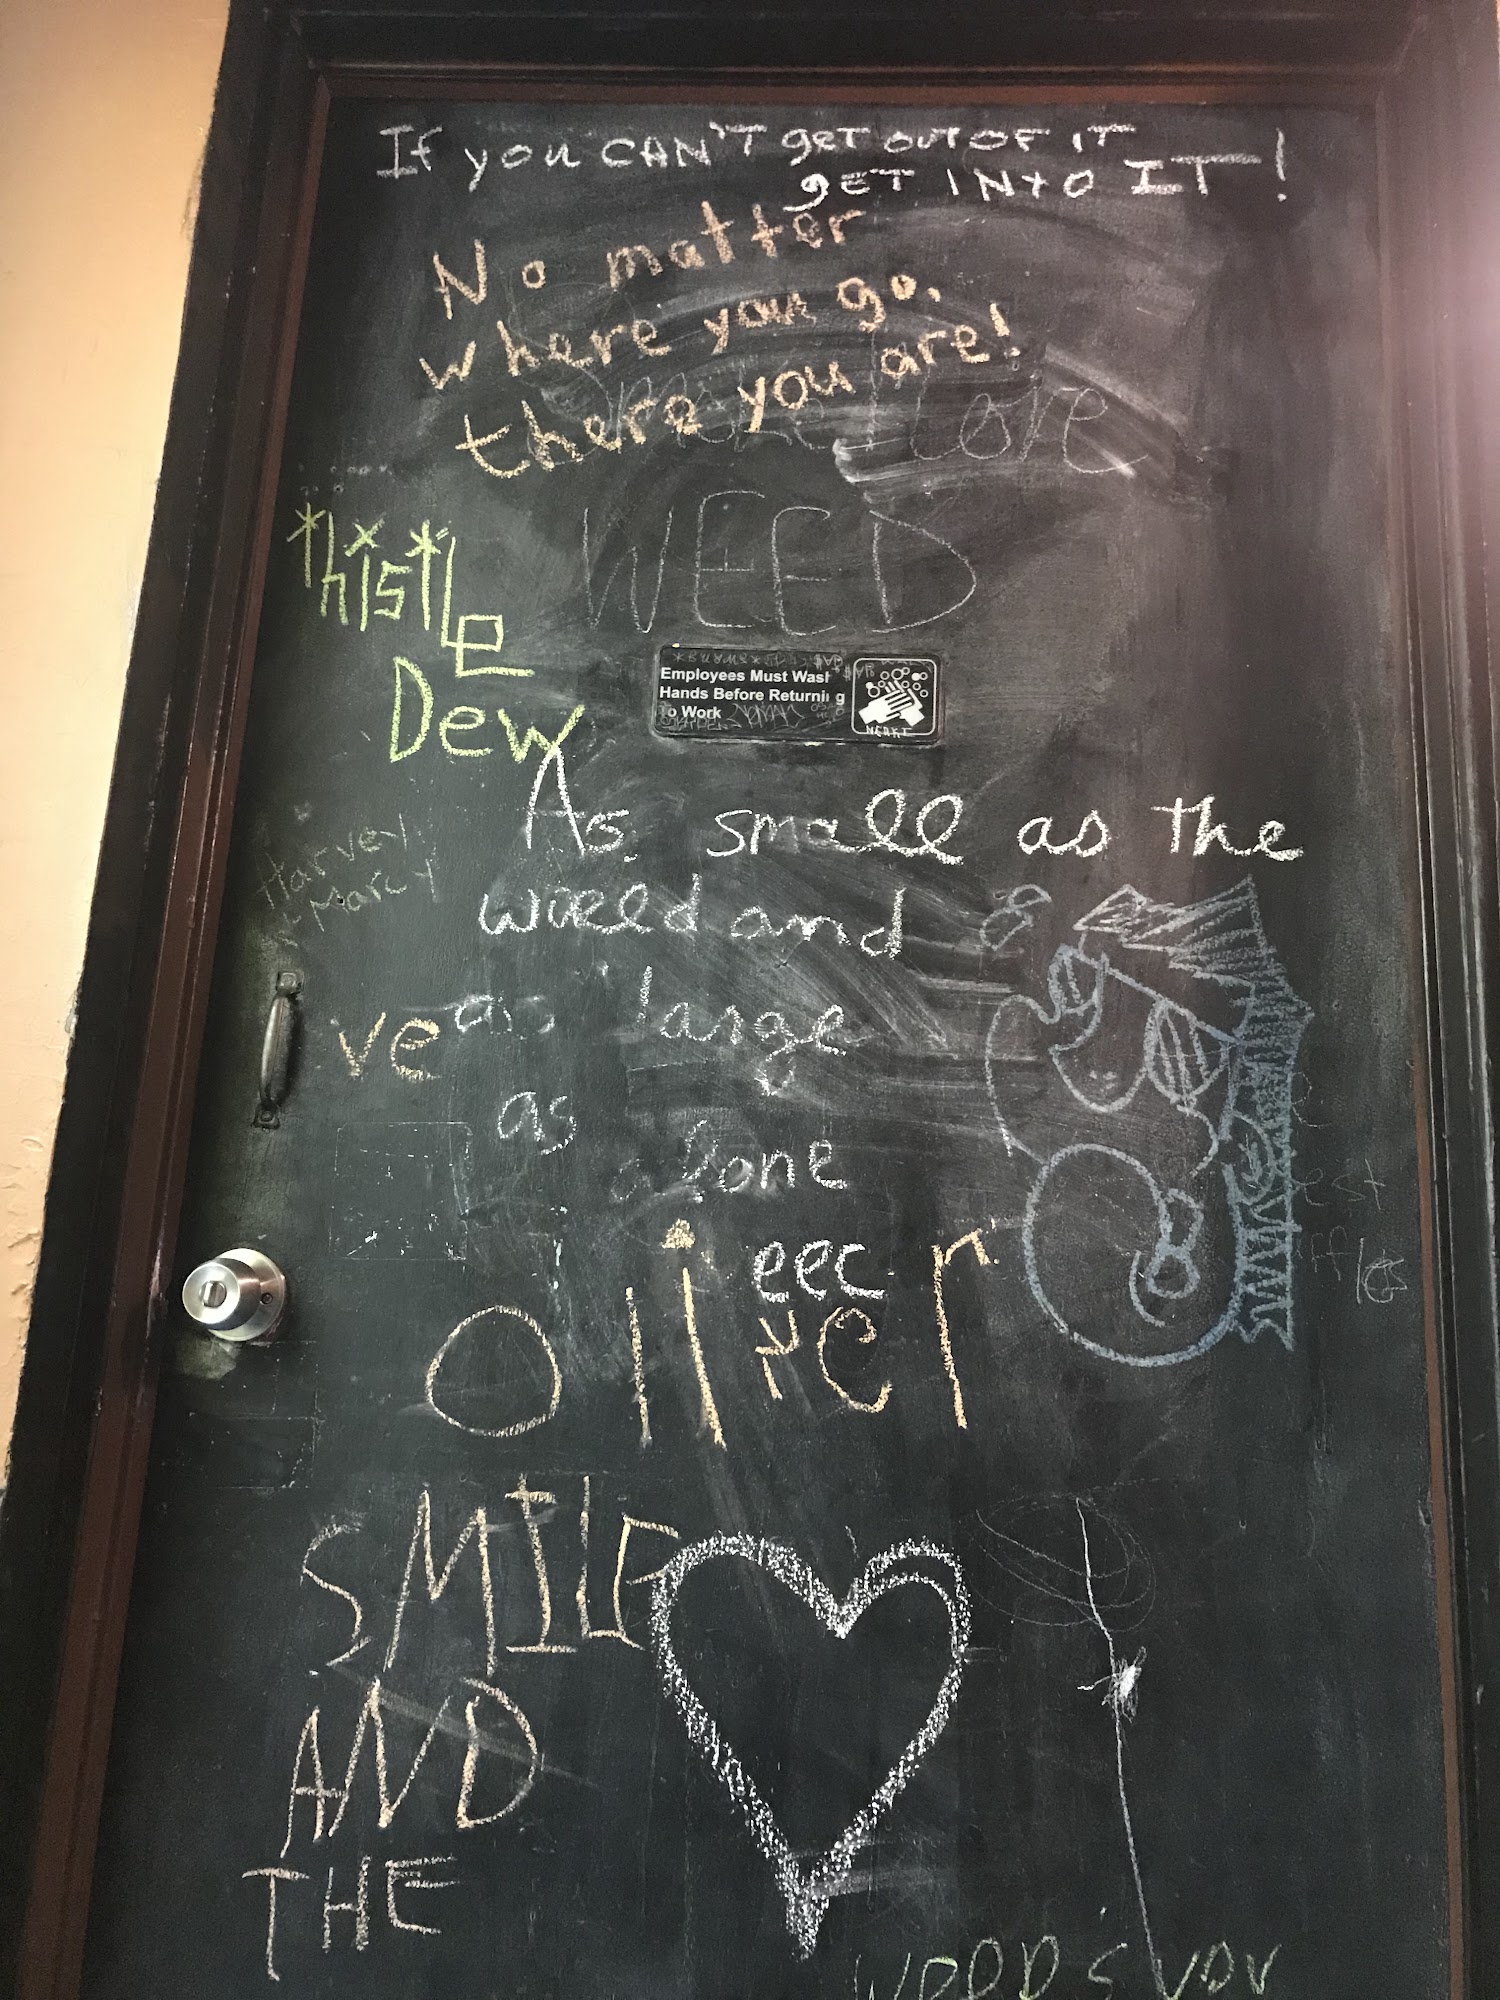 If you CAN'T get out OF IT
get INTO IT!
No matter
where you go,
there you are!
love
WEED
Thistle
Dew
Employees Must Wash
Hands Before Returning
To Work
As small as the
wirld and
as large
as
alone
eec
Harvey
Marcy
ve
oliver
SMILE
AND
THE